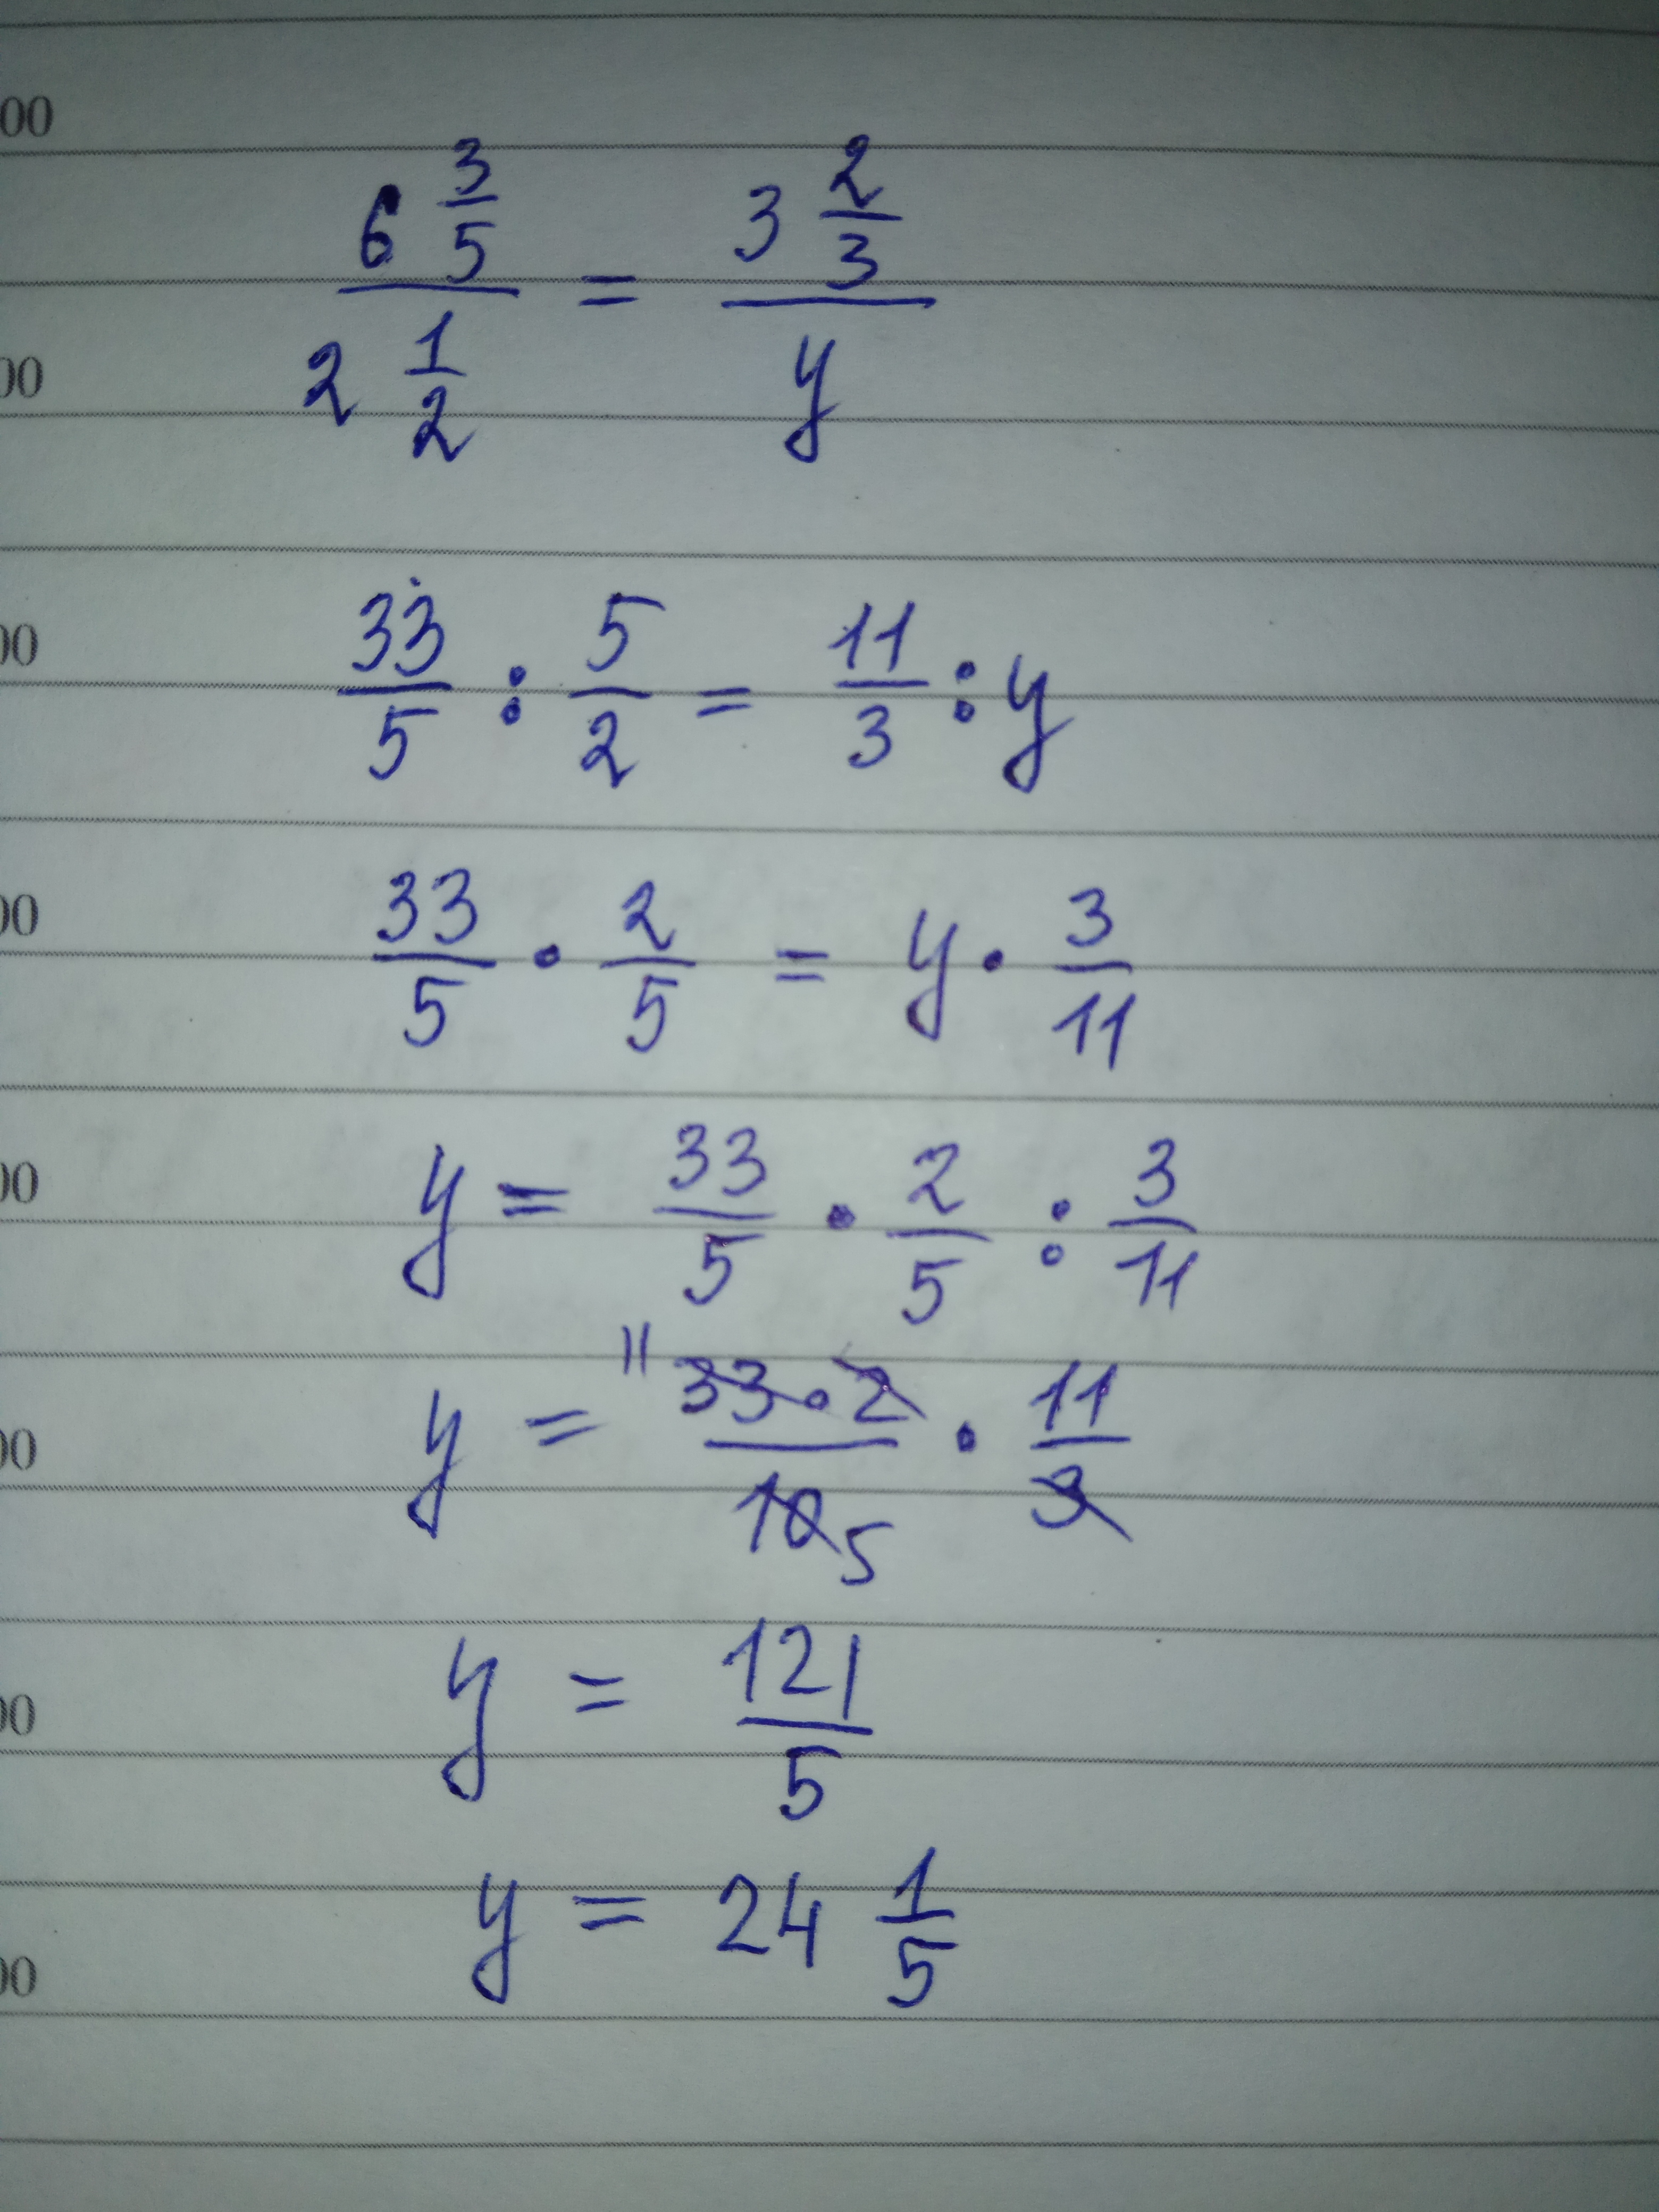 00
6 3/5 / 2 1/2 = 3 2/3 / y
00
33/5 : 5/2 = 11/3 : y
00
33/5 · 2/5 = y · 3/11
00
y = 33/5 · 2/5 : 3/11
00
y = 11 33·2 / 10 5 · 11/3
00
y = 121/5
00
y = 24 1/5
00